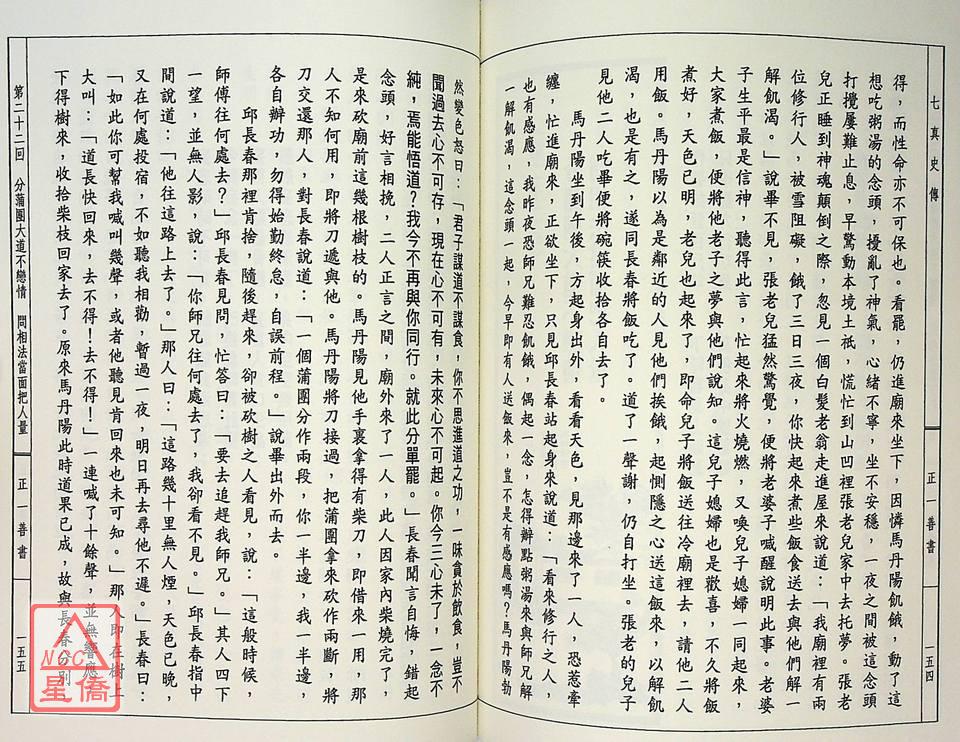 七真史傳
正一善書
一五四
得，而性命亦不可保也。看罷，仍進廟來坐下，因憐馬丹陽飢餓，動了這
想吃粥湯的念頭，擾亂了神氣，心緒不寧，坐不安穩，一夜之間被這念頭
打攪屢難止息，早驚動本境土祇，慌忙到山凹裡張老兒家中去托夢。張老
兒正睡到神魂顛倒之際，忽見一個白髮老翁走進屋來說道：「我廟裡有兩
位修行人，被雪阻礙，餓了三日三夜，你快起來煮些飯食送去與他們解一
解飢渴。」說畢不見，張老兒猛然驚覺，便將老婆子喊醒說明此事。老婆
子生平最是信神，聽得此言，忙起來將火燒燃，又喚兒子媳婦一同起來，
大家煮飯，便將他老子之夢與他們說知。這兒子媳婦也是歡喜，不久將飯
煮好，天色已明，老兒也起來了，即命兒子將飯送往冷廟裡去，請他二人
用飯。馬丹陽以為是鄰近的人見他們挨餓，起惻隱之心送這飯來，以解飢
渴，也是有之，遂同長春將飯吃了。道了一聲謝，仍自打坐。張老的兒子
見他二人吃畢便將碗筷收拾各自去了。
馬丹陽坐到午後，方起身出外，看看天色，見那邊來了一人，恐惹牽
纏，忙進廟來，正欲坐下，只見邱長春站起身來說道：「看來修行之人，
也有感應，我昨夜恐師兄難忍飢餓，偶起一念，怎得辦點粥湯來與師兄解
一解飢渴，這念頭一起，今早即有人送飯來，豈不是有感應嗎？」馬丹陽勃
然變色怒曰：「君子謀道不謀食，你不思進道之功，一味貪於飲食，豈不
聞過去心不可存，現在心不可有，未來心不可起。你今三心未了，一念不
純，焉能悟道？我今不再與你同行。就此分單罷。」長春聞言自悔，錯起
念頭，好言相挽，二人正言之間，廟外來了一人，此人因家內柴燒完了，
是來砍廟前這幾根樹枝的。馬丹陽見他手裏拿得有柴刀，即借來一用，那
人不知何用，即將刀遞與他。馬丹陽將刀接過，把蒲團拿來砍作兩斷，將
刀交還那人，對長春說道：「一個蒲團分作兩段，你一半邊，我一半邊，
各自辦功，勿得始勤終怠，自誤前程。」說畢出外而去。
邱長春那裡肯捨，隨後趕來，卻被砍樹之人看見，說：「這般時候，
師傅往何處去？」邱長春見問，忙答曰：「要去追趕我師兄。」其人四下
一望，並無人影，說：「你師兄往何處去了，我卻看不見。」邱長春指中
間說道：「他往這路上去了。」那人曰：「這路幾十里無人煙，天色已晚，
又在何處投宿，不如聽我相勸，暫過一夜，明日再去尋他不遲。」長春曰：
「如此你可幫我喊叫幾聲，或者他聽見肯回來也未可知。」那人即在樹上
大叫：「道長快回來，去不得！去不得！」一連喊了十餘聲，並無響應，
下得樹來，收拾柴枝回家去了。原來馬丹陽此時道果已成，故與長春分別
第二十二回　分蒲團大道不戀情　問相法當面把人量
正一善書
一五五
NCC
星僑